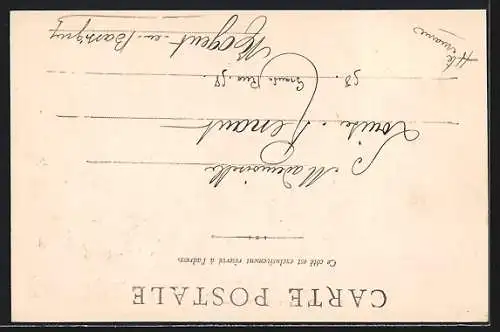 CARTE POSTALE
Ce côté est exclusivement réservé à l'adresse.
Mademoiselle
Louise Renaut
58. Grande Rue. 58
Nogent-en-Bassigny
Hte Marne